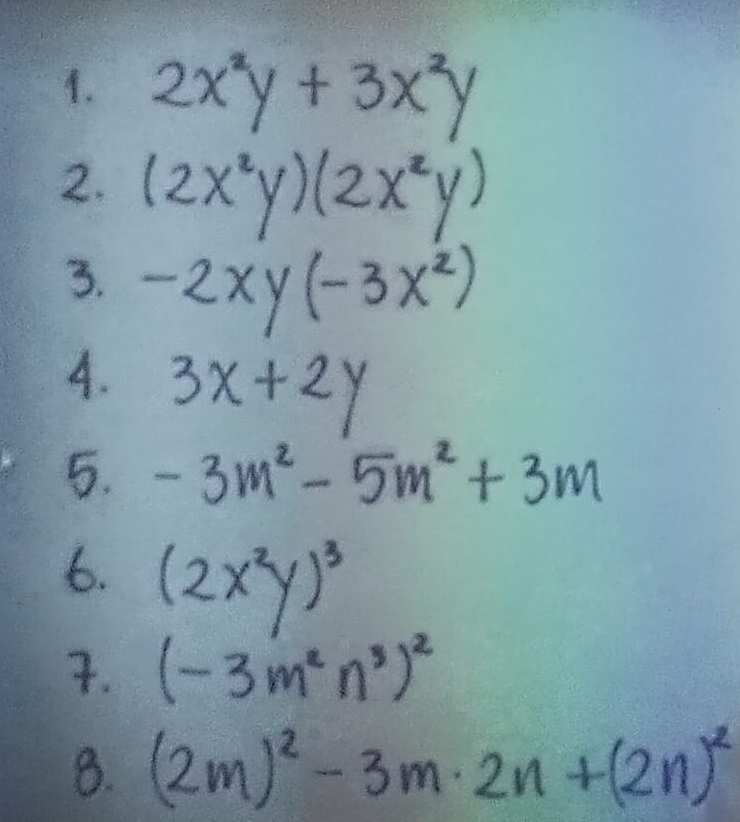 1. 2x²y + 3x²y
2. (2x²y)(2x²y)
3. -2xy(-3x²)
4. 3x+2y
5. -3m² - 5m² + 3m
6. (2x²y)³
7. (-3m²n³)²
8. (2m)² - 3m·2n + (2n)²